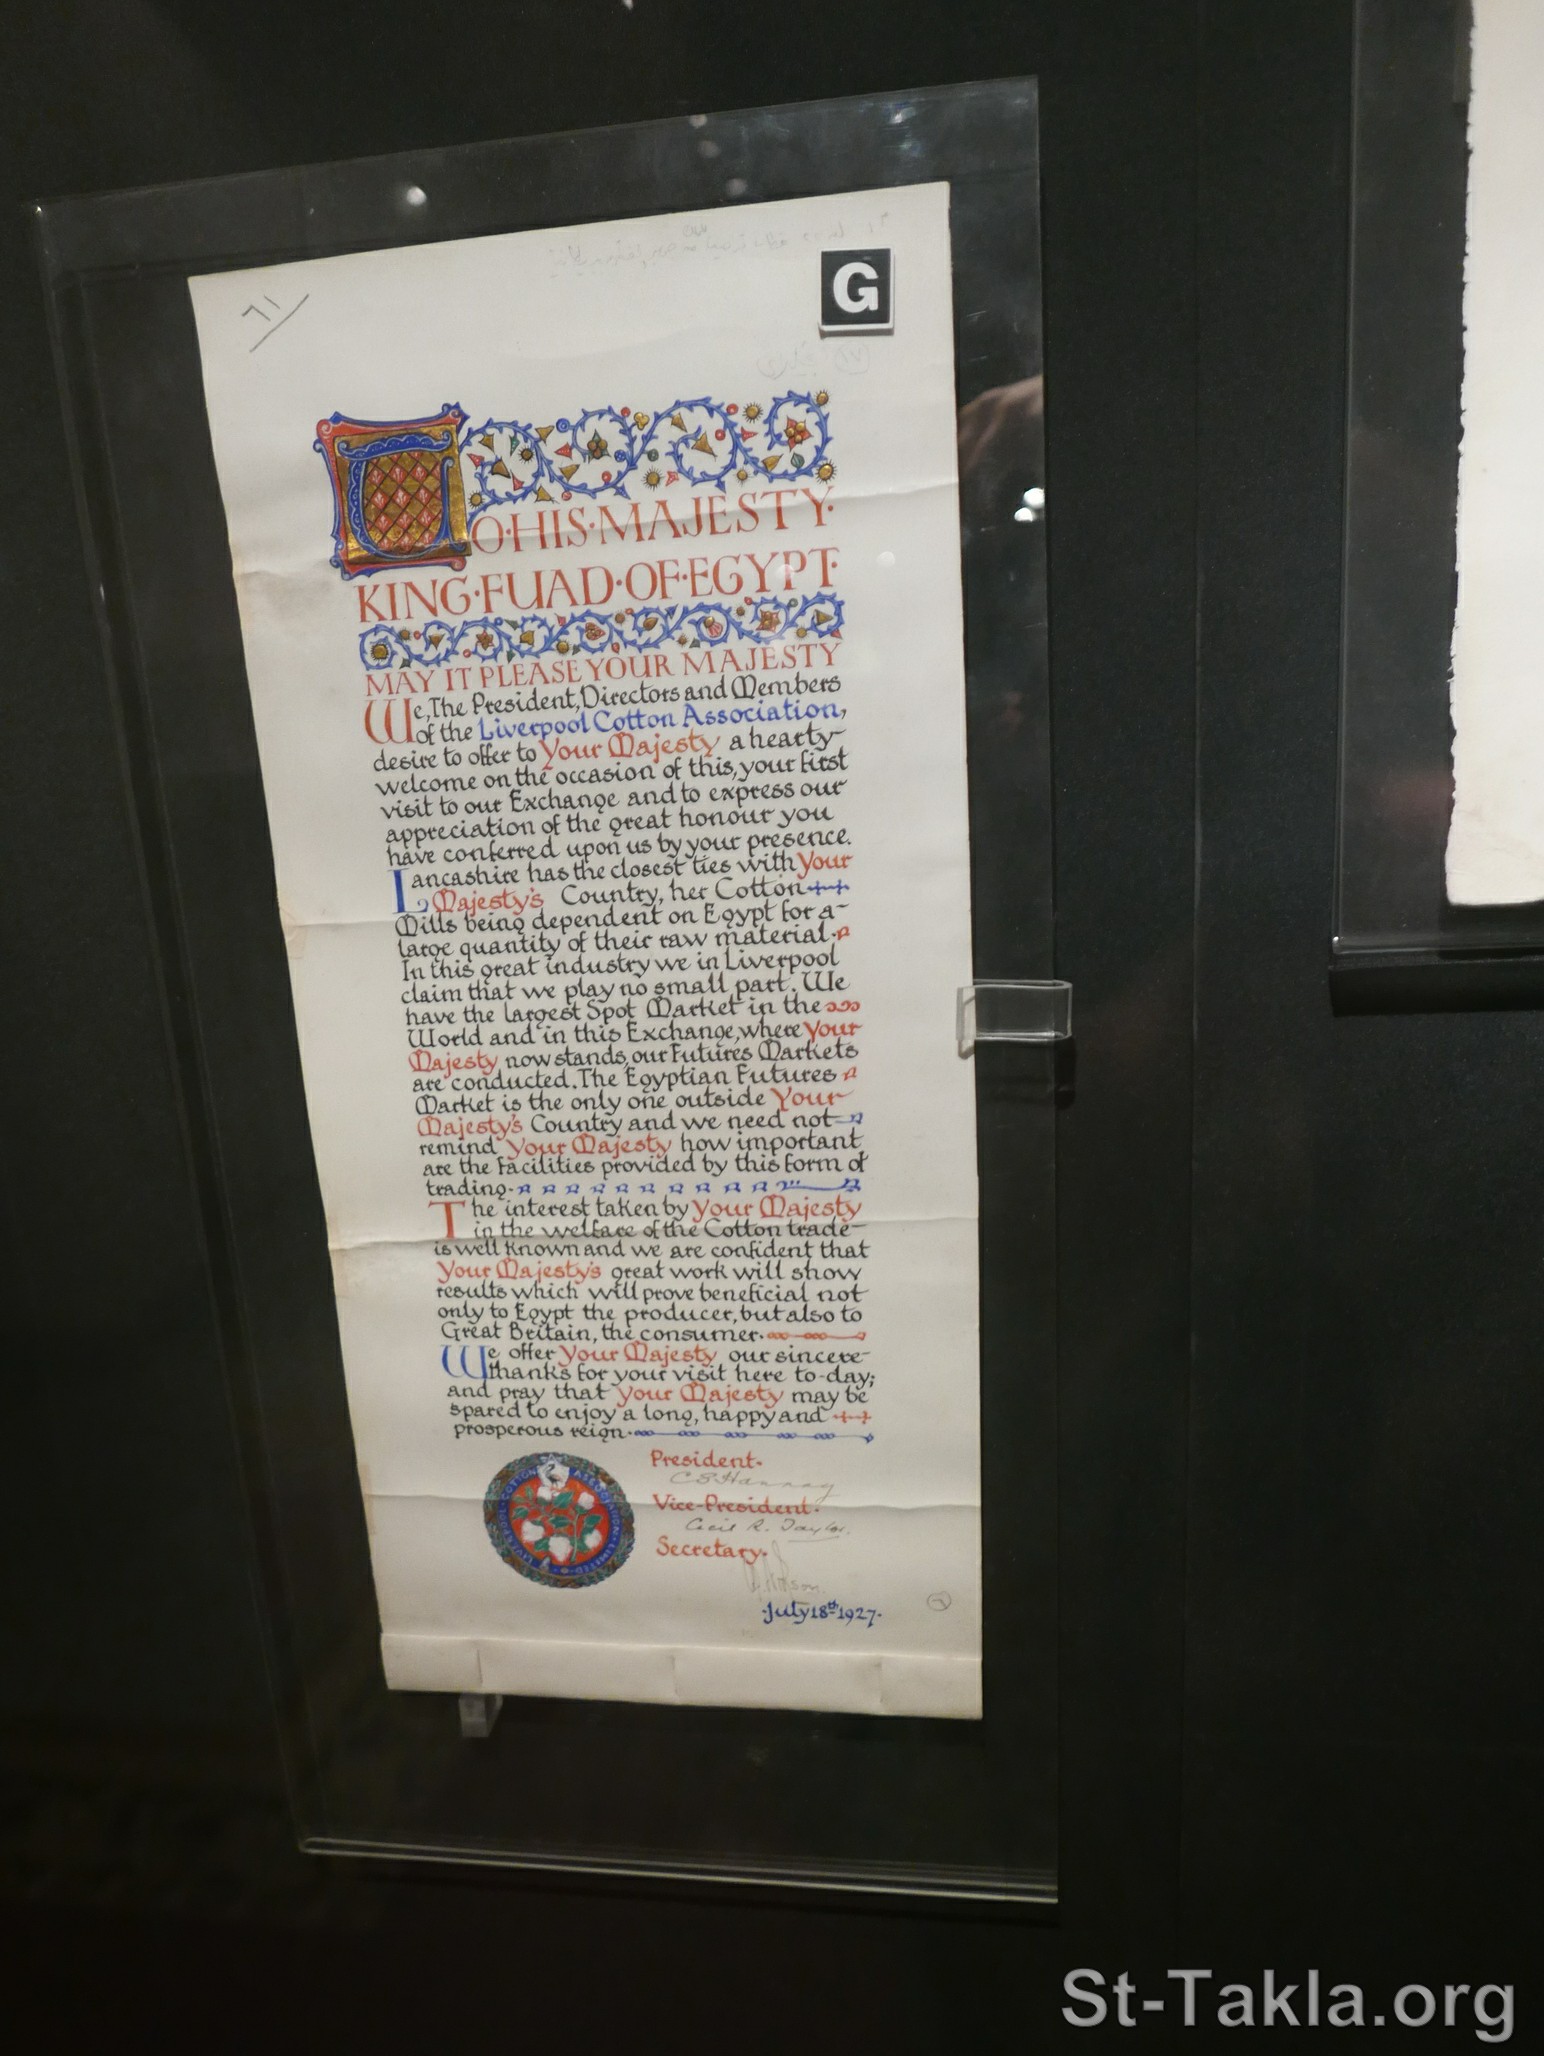 ٦١
G
TO·HIS·MAJESTY·
KING·FUAD·OF·EGYPT·
MAY IT PLEASE YOUR MAJESTY
We, The President, Directors and Members
of the Liverpool Cotton Association,
desire to offer to Your Majesty a hearty
welcome on the occasion of this, your first
visit to our Exchange and to express our
appreciation of the great honour you
have conferred upon us by your presence.
Lancashire has the closest ties with Your
Majesty's Country, her Cotton
Mills being dependent on Egypt for a
large quantity of their raw material.
In this great industry we in Liverpool
claim that we play no small part. We
have the largest Spot Market in the
World and in this Exchange, where Your
Majesty now stands, our Futures Markets
are conducted. The Egyptian Futures
Market is the only one outside Your
Majesty's Country and we need not
remind Your Majesty how important
are the facilities provided by this form of
trading.
The interest taken by Your Majesty
in the welfare of the Cotton trade
is well known and we are confident that
Your Majesty's great work will show
results which will prove beneficial not
only to Egypt the producer, but also to
Great Britain, the consumer.
We offer Your Majesty our sincere
thanks for your visit here to-day;
and pray that Your Majesty may be
spared to enjoy a long, happy and
prosperous reign.
LIVERPOOL·COTTON ASSOCIATION·LIMITED·
President.
C S Hannay
Vice-President.
Cecil R. Taylor.
Secretary.
·July 18th 1927·
St-Takla.org